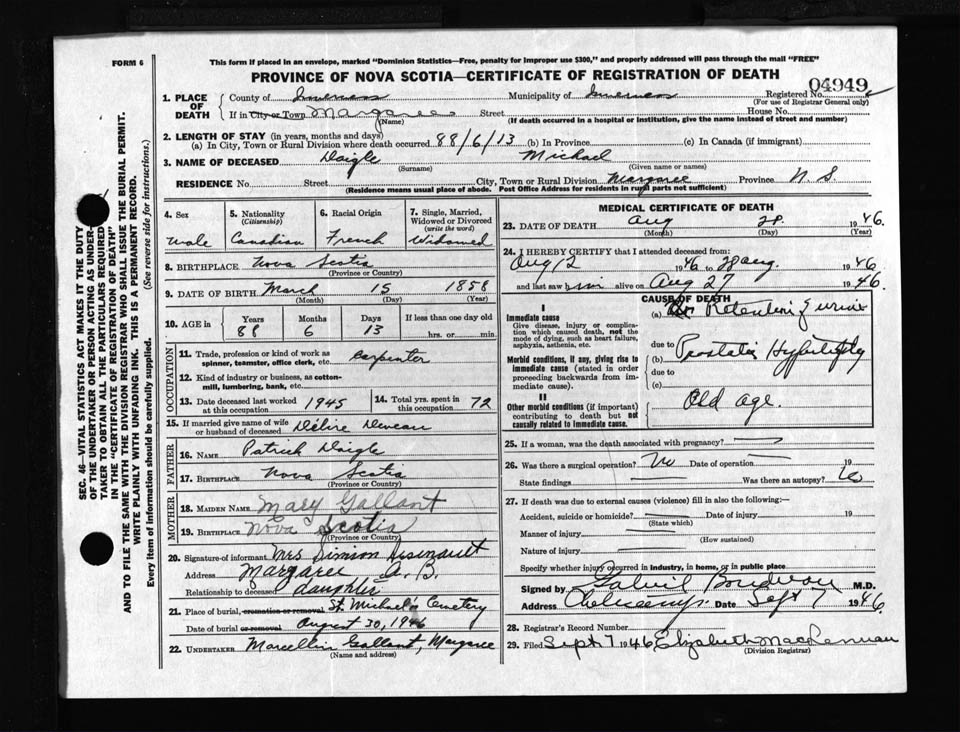 FORM 6
This form if placed in an envelope, marked "Dominion Statistics—Free, penalty for improper use $300," and properly addressed will pass through the mail "FREE"
PROVINCE OF NOVA SCOTIA—CERTIFICATE OF REGISTRATION OF DEATH
04949
1. PLACE OF DEATH
County of Inverness Municipality of Inverness Registered No.
(For use of Registrar General only)
If in City or Town Margaree Street House No.
(Name) (If death occurred in a hospital or institution, give the name instead of street and number)
2. LENGTH OF STAY (in years, months and days)
(a) In City, Town or Rural Division where death occurred 88/6/13 (b) In Province (c) In Canada (if immigrant)
3. NAME OF DECEASED Daigle Michael
(Surname) (Given name or names)
RESIDENCE No. Street City, Town or Rural Division Margaree Province N. S.
(Residence means usual place of abode. Post Office Address for residents in rural parts not sufficient)
4. Sex Male
5. Nationality (Citizenship) Canadian
6. Racial Origin French
7. Single, Married, Widowed or Divorced (write the word) Widowed
8. BIRTHPLACE Nova Scotia
(Province or Country)
9. DATE OF BIRTH March 15 1858
(Month) (Day) (Year)
10. AGE in Years Months Days If less than one day old
88 6 13 hrs. or min.
OCCUPATION
11. Trade, profession or kind of work as spinner, teamster, office clerk, etc. Carpenter
12. Kind of industry or business, as cotton-mill, lumbering, bank, etc.
13. Date deceased last worked at this occupation 1945
14. Total yrs. spent in this occupation 72
15. If married give name of wife or husband of deceased
FATHER
16. NAME Patrick Daigle
17. BIRTHPLACE Nova Scotia
(Province or Country)
MOTHER
18. MAIDEN NAME Mary Gallant
19. BIRTHPLACE Nova Scotia
(Province or Country)
20. Signature of informant Mrs Simion Arsenault
Address Margaree
Relationship to deceased daughter
21. Place of burial, cremation or removal St. Michael's Cemetery
Date of burial or removal August 30, 1946
22. UNDERTAKER Marcellin Gallant, Margaree
(Name and address)
MEDICAL CERTIFICATE OF DEATH
23. DATE OF DEATH Aug 28. 1946.
(Month) (Day) (Year)
24. I HEREBY CERTIFY that I attended deceased from:
Aug 12 1946 to 28 aug. 1946
and last saw him alive on Aug 27 1946.
CAUSE OF DEATH
I
Immediate cause
Give disease, injury or complication which caused death, not the mode of dying, such as heart failure, asphyxia, asthenia, etc.
(a) Retention of urine
due to
Morbid conditions, if any, giving rise to immediate cause (stated in order proceeding backwards from immediate cause).
(b)
due to
(c)
II
Other morbid conditions (if important) contributing to death but not causally related to immediate cause.
Old age.
25. If a woman, was the death associated with pregnancy?
26. Was there a surgical operation? No Date of operation 19
State findings Was there an autopsy? No
27. If death was due to external causes (violence) fill in also the following:-
Accident, suicide or homicide? Date of injury 19
(State which)
Manner of injury
(How sustained)
Nature of injury
Specify whether injury occurred in industry, in home, or in public place
Signed by Gabriel Boudreau M.D.
Address Cheticamp. Date Sept 7 1946.
28. Registrar's Record Number
29. Filed Sept 7 1946 Elizabeth MacLennan
(Division Registrar)
SEC. 46—VITAL STATISTICS ACT MAKES IT THE DUTY
OF THE UNDERTAKER OR PERSON ACTING AS UNDER-
TAKER TO OBTAIN ALL THE PARTICULARS REQUIRED
IN THE "CERTIFICATE OF REGISTRATION OF DEATH"
AND TO FILE THE SAME WITH THE DIVISION REGISTRAR WHO SHALL ISSUE THE BURIAL PERMIT.
WRITE PLAINLY WITH UNFADING INK. THIS IS A PERMANENT RECORD.
Every item of information should be carefully supplied. (See reverse side for instructions.)